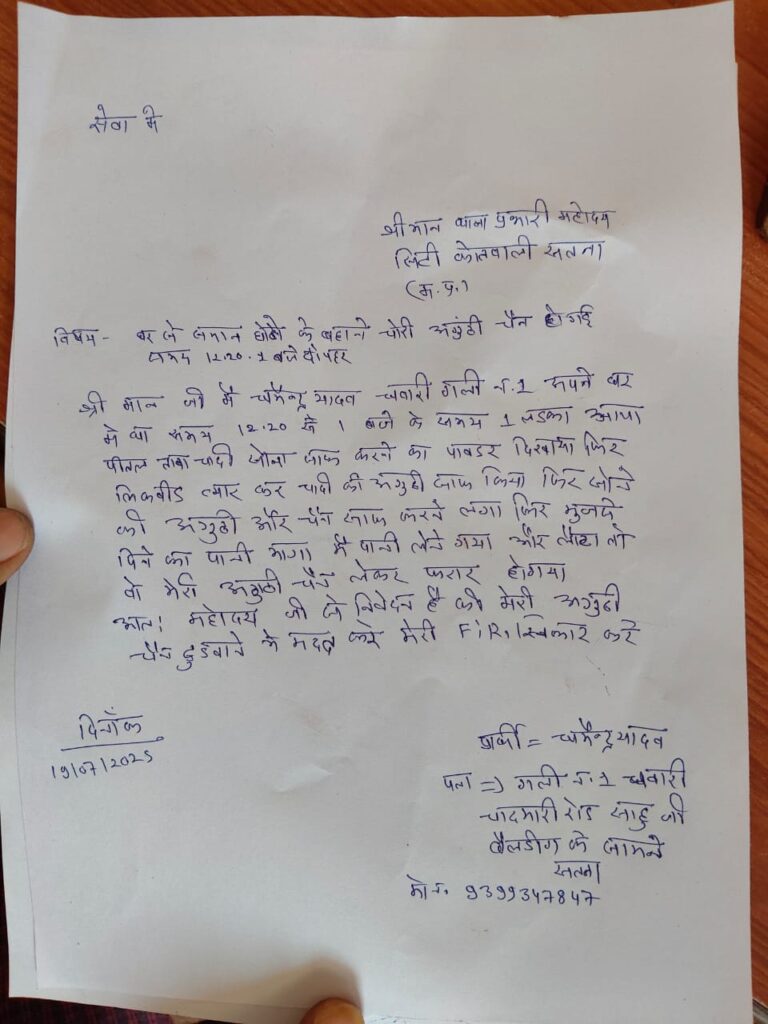 सेवा मे
श्रीमान थाना प्रभारी महोदय
सिटी कोतवाली सतना
(म.प्र.)
विषय- घर से समान धोने के बहाने चोरी अगुंठी चैन हो गई
समय 12.20.1 बजे दोपहर
श्री मान जी मै धर्मेन्द्र यादव धवारी गली न.1 अपने घर
मे था समय 12.20 से 1 बजे के समय 1 लडका आया
पीतल ताबा चादी सोना साफ करने का पावडर दिखाया फिर
लिकवीड त्यार कर चादी की अगुठी साफ किया फिर सोने
की अगुठी और चैन साफ करने लगा फिर मुझसे
पिने का पानी मागा मै पानी लेने गया और लौटा तो
वो मेरी अगुठी चैन लेकर फरार होगया
अतः महोदय जी से निवेदन है की मेरी अगुठी
चैन ढुडवाने मे मदद करे मेरी F.i.R. स्विकार करे
दिनाँक
19/07/2025
प्रार्थी = धर्मेन्द्र यादव
पता => गली न.1 धवारी
चादमारी रोड साहु जी
बैलडीग के सामने
सतना
मो न. 9399347847